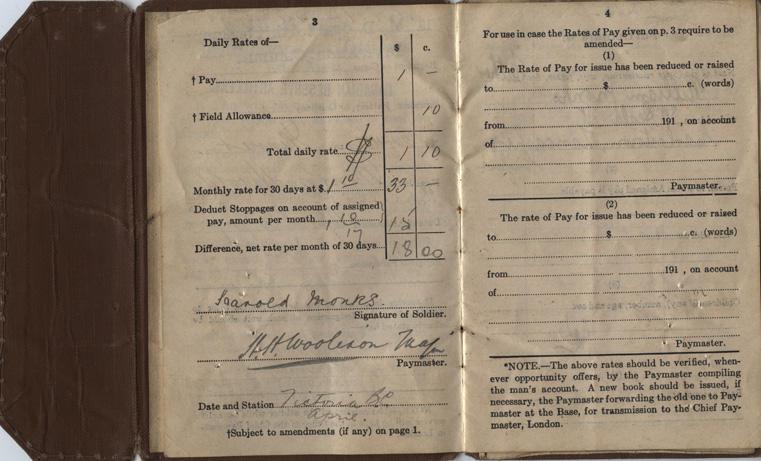 3
Daily Rates of—
$ c.
† Pay 1 —
† Field Allowance 10
Total daily rate $ 1 10
Monthly rate for 30 days at $ 1 10 33 —
Deduct Stoppages on account of assigned
pay, amount per month 15
Difference, net rate per month of 30 days 18 00
Harold Monks.
Signature of Soldier.
Paymaster.
Date and Station Victoria BC
April.
†Subject to amendments (if any) on page 1.
4
For use in case the Rates of Pay given on p. 3 require to be
amended—
(1)
The Rate of Pay for issue has been reduced or raised
to $ c. (words)
from 191 , on account
of
Paymaster.
(2)
The rate of Pay for issue has been reduced or raised
to $ c. (words)
from 191 , on account
of
Paymaster.
*NOTE.—The above rates should be verified, when-
ever opportunity offers, by the Paymaster compiling
the man's account. A new book should be issued, if
necessary, the Paymaster forwarding the old one to Pay-
master at the Base, for transmission to the Chief Pay-
master, London.